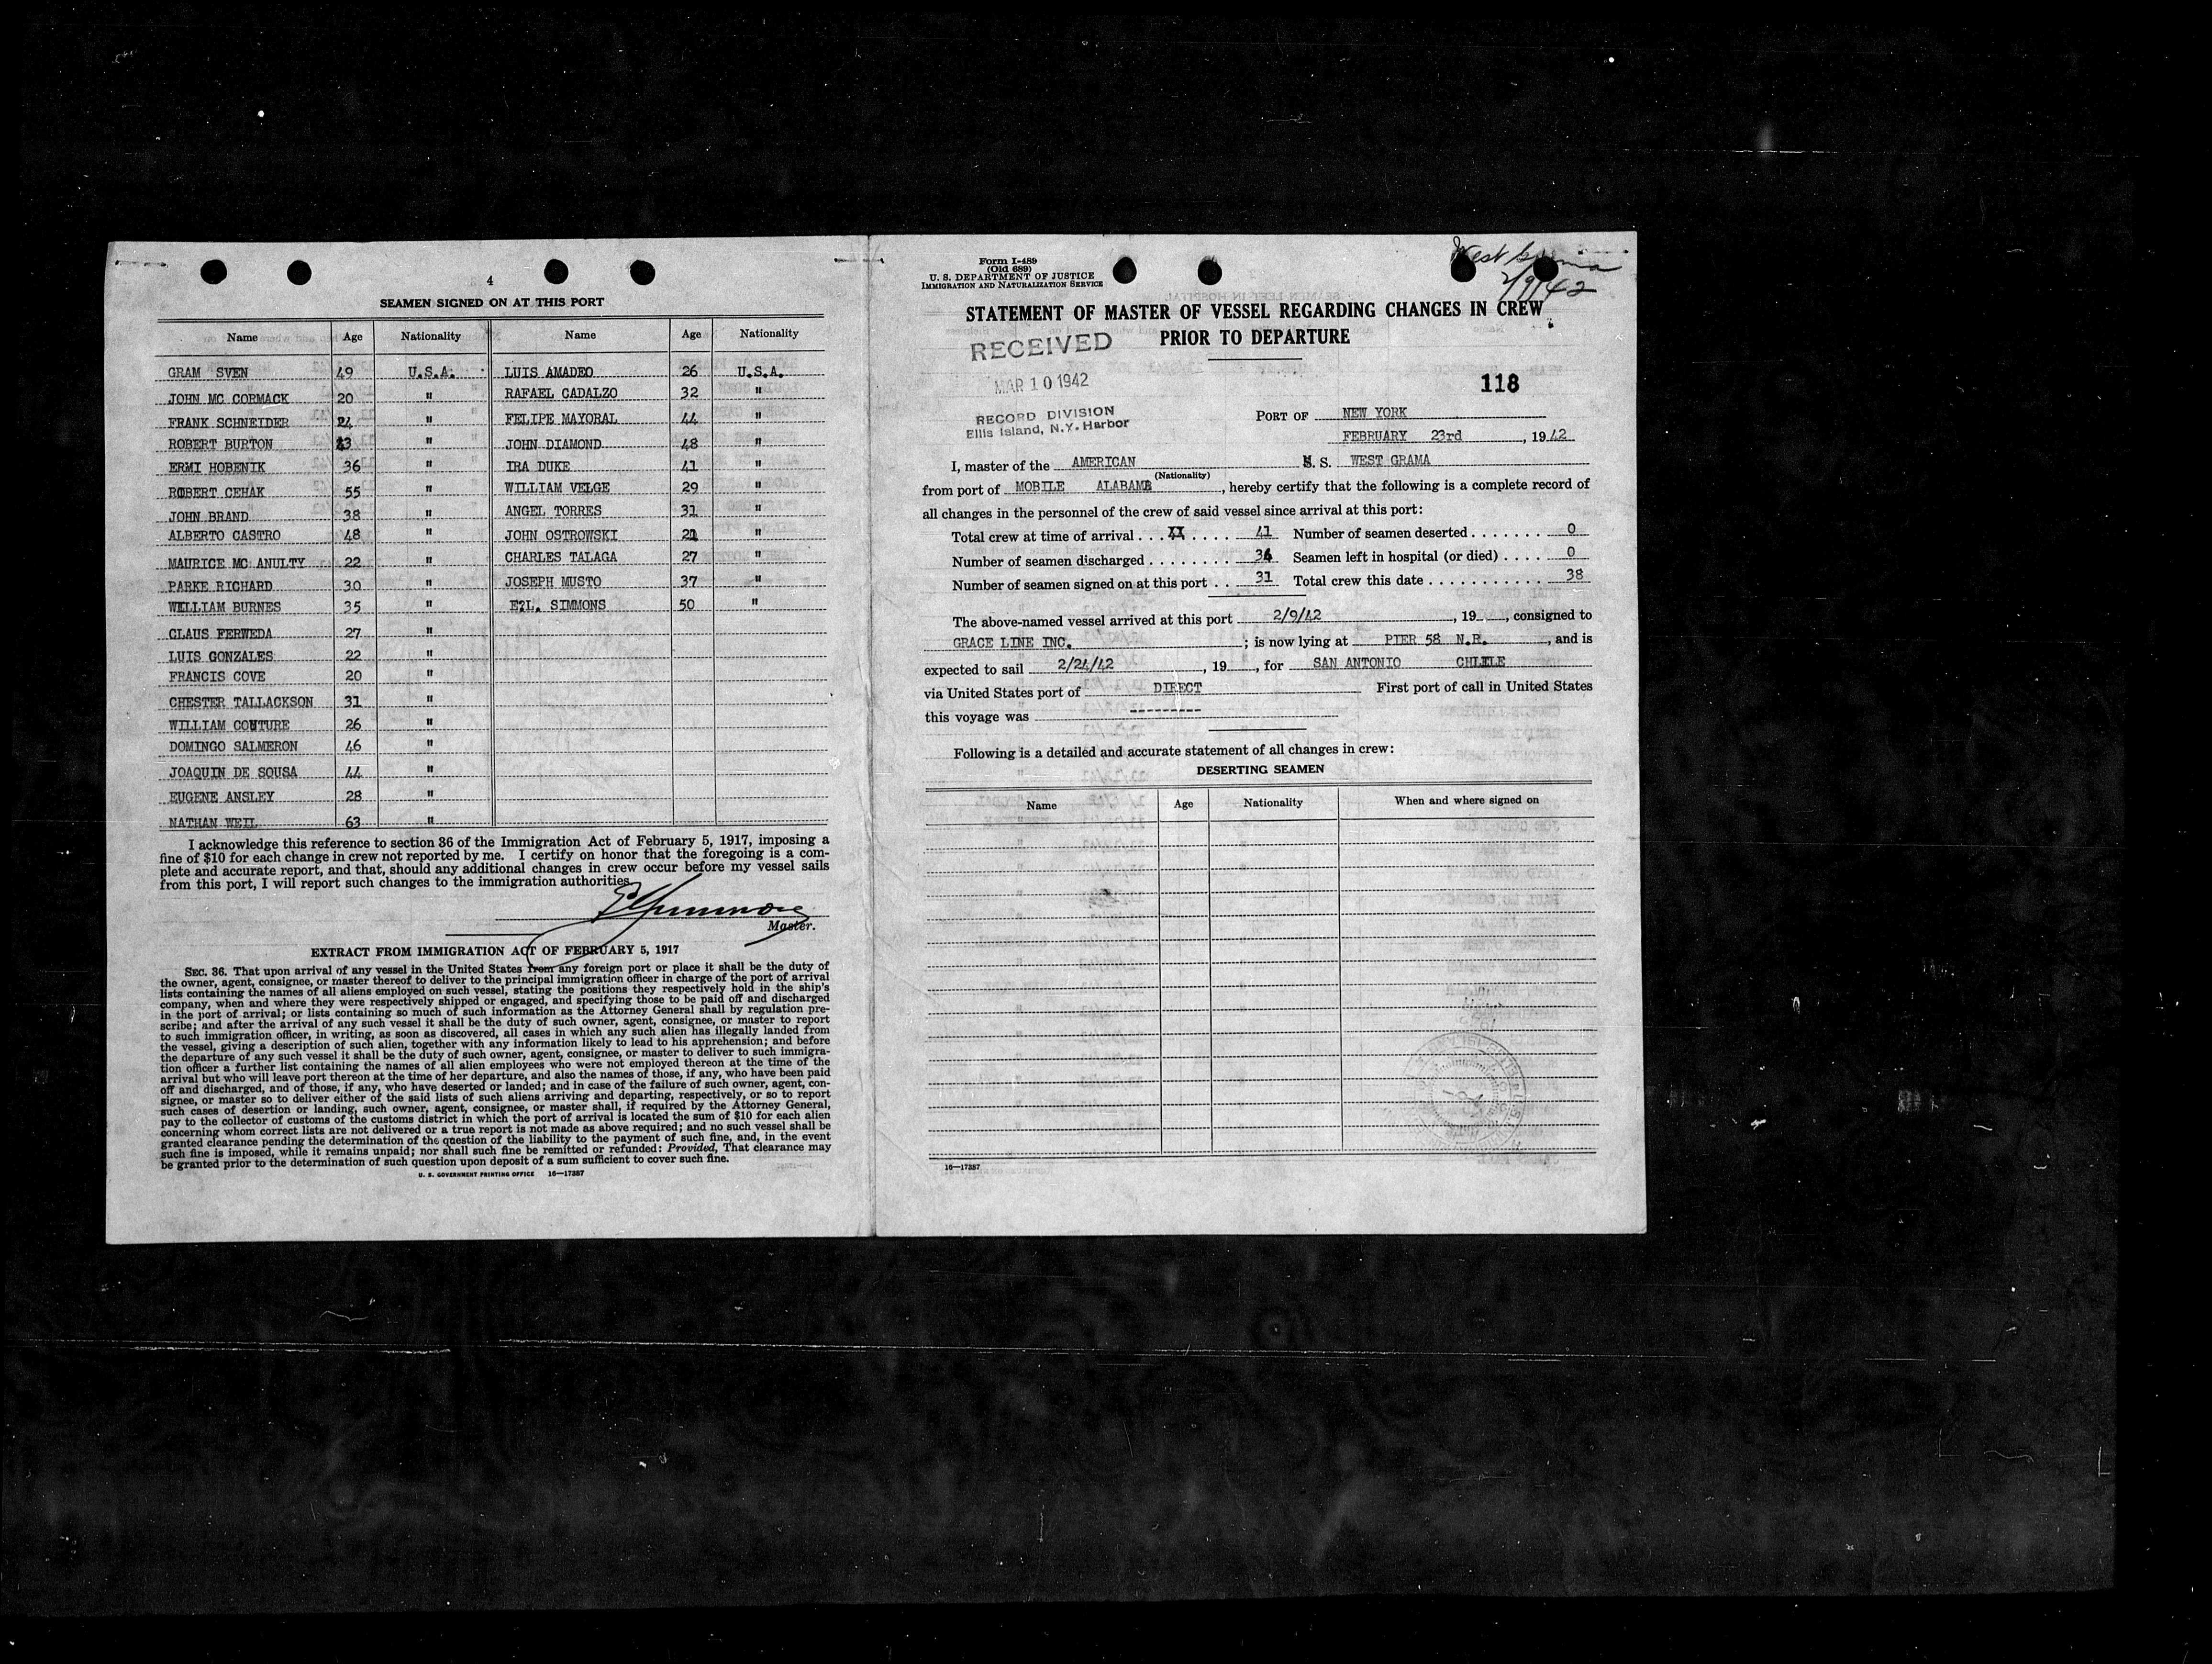 4
SEAMEN SIGNED ON AT THIS PORT
Name Age Nationality Name Age Nationality
GRAM SVEN 49 U.S.A. LUIS AMADEO 26 U.S.A.
JOHN MC CORMACK 20 " RAFAEL CADALZO 32 "
FRANK SCHNEIDER 24 " FELIPE MAYORAL 44 "
ROBERT BURTON " JOHN DIAMOND 48 "
ERMI HOBENIK 36 " IRA DUKE 41 "
ROBERT CEHAK 55 " WILLIAM VELGE 29 "
JOHN BRAND 38 " ANGEL TORRES 31 "
ALBERTO CASTRO 48 " JOHN OSTROWSKI "
MAURICE MC ANULTY 22 " CHARLES TALAGA 27 "
PARKE RICHARD 30 " JOSEPH MUSTO 37 "
WILLIAM BURNES 35 " E.L. SIMMONS 50 "
CLAUS FERWEDA 27 "
LUIS GONZALES 22 "
FRANCIS COVE 20 "
CHESTER TALLACKSON 31 "
WILLIAM COUTURE 26 "
DOMINGO SALMERON 46 "
JOAQUIN DE SOUSA 44 "
EUGENE ANSLEY 28 "
NATHAN WEIL 63 "
I acknowledge this reference to section 36 of the Immigration Act of February 5, 1917, imposing a
fine of $10 for each change in crew not reported by me. I certify on honor that the foregoing is a com-
plete and accurate report, and that, should any additional changes in crew occur before my vessel sails
from this port, I will report such changes to the immigration authorities.
E L Simmons
Master.
EXTRACT FROM IMMIGRATION ACT OF FEBRUARY 5, 1917
SEC. 36. That upon arrival of any vessel in the United States from any foreign port or place it shall be the duty of
the owner, agent, consignee, or master thereof to deliver to the principal immigration officer in charge of the port of arrival
lists containing the names of all aliens employed on such vessel, stating the positions they respectively hold in the ship's
company, when and where they were respectively shipped or engaged, and specifying those to be paid off and discharged
in the port of arrival; or lists containing so much of such information as the Attorney General shall by regulation pre-
scribe; and after the arrival of any such vessel it shall be the duty of such owner, agent, consignee, or master to report
to such immigration officer, in writing, as soon as discovered, all cases in which any such alien has illegally landed from
the vessel, giving a description of such alien, together with any information likely to lead to his apprehension; and before
the departure of any such vessel it shall be the duty of such owner, agent, consignee, or master to deliver to such immigra-
tion officer a further list containing the names of all alien employees who were not employed thereon at the time of the
arrival but who will leave port thereon at the time of her departure, and also the names of those, if any, who have been paid
off and discharged, and of those, if any, who have deserted or landed; and in case of the failure of such owner, agent, con-
signee, or master so to deliver either of the said lists of such aliens arriving and departing, respectively, or so to report
such cases of desertion or landing, such owner, agent, consignee, or master shall, if required by the Attorney General,
pay to the collector of customs of the customs district in which the port of arrival is located the sum of $10 for each alien
concerning whom correct lists are not delivered or a true report is not made as above required; and no such vessel shall be
granted clearance pending the determination of the question of the liability to the payment of such fine, and, in the event
such fine is imposed, while it remains unpaid; nor shall such fine be remitted or refunded: Provided, That clearance may
be granted prior to the determination of such question upon deposit of a sum sufficient to cover such fine.
U. S. GOVERNMENT PRINTING OFFICE 16—17387
Form I-489
(Old 689)
U. S. DEPARTMENT OF JUSTICE
IMMIGRATION AND NATURALIZATION SERVICE
West Grama
2/9/42
STATEMENT OF MASTER OF VESSEL REGARDING CHANGES IN CREW
PRIOR TO DEPARTURE
RECEIVED
MAR 10 1942
RECORD DIVISION
Ellis Island, N.Y. Harbor
118
PORT OF NEW YORK
FEBRUARY 23rd, 1942
I, master of the AMERICAN S. S. WEST GRAMA
(Nationality)
from port of MOBILE ALABAMA, hereby certify that the following is a complete record of
all changes in the personnel of the crew of said vessel since arrival at this port:
Total crew at time of arrival . . . . . . . 41 Number of seamen deserted . . . . . . . 0
Number of seamen discharged . . . . . . . . 34 Seamen left in hospital (or died) . . . . 0
Number of seamen signed on at this port . . 31 Total crew this date . . . . . . . . . . . 38
The above-named vessel arrived at this port 2/9/42, 19 , consigned to
GRACE LINE INC. ; is now lying at PIER 58 N.R. , and is
expected to sail 2/24/42 , 19 , for SAN ANTONIO CHLELE
via United States port of DIRECT First port of call in United States
this voyage was ---------
Following is a detailed and accurate statement of all changes in crew:
DESERTING SEAMEN
Name Age Nationality When and where signed on
16—17387